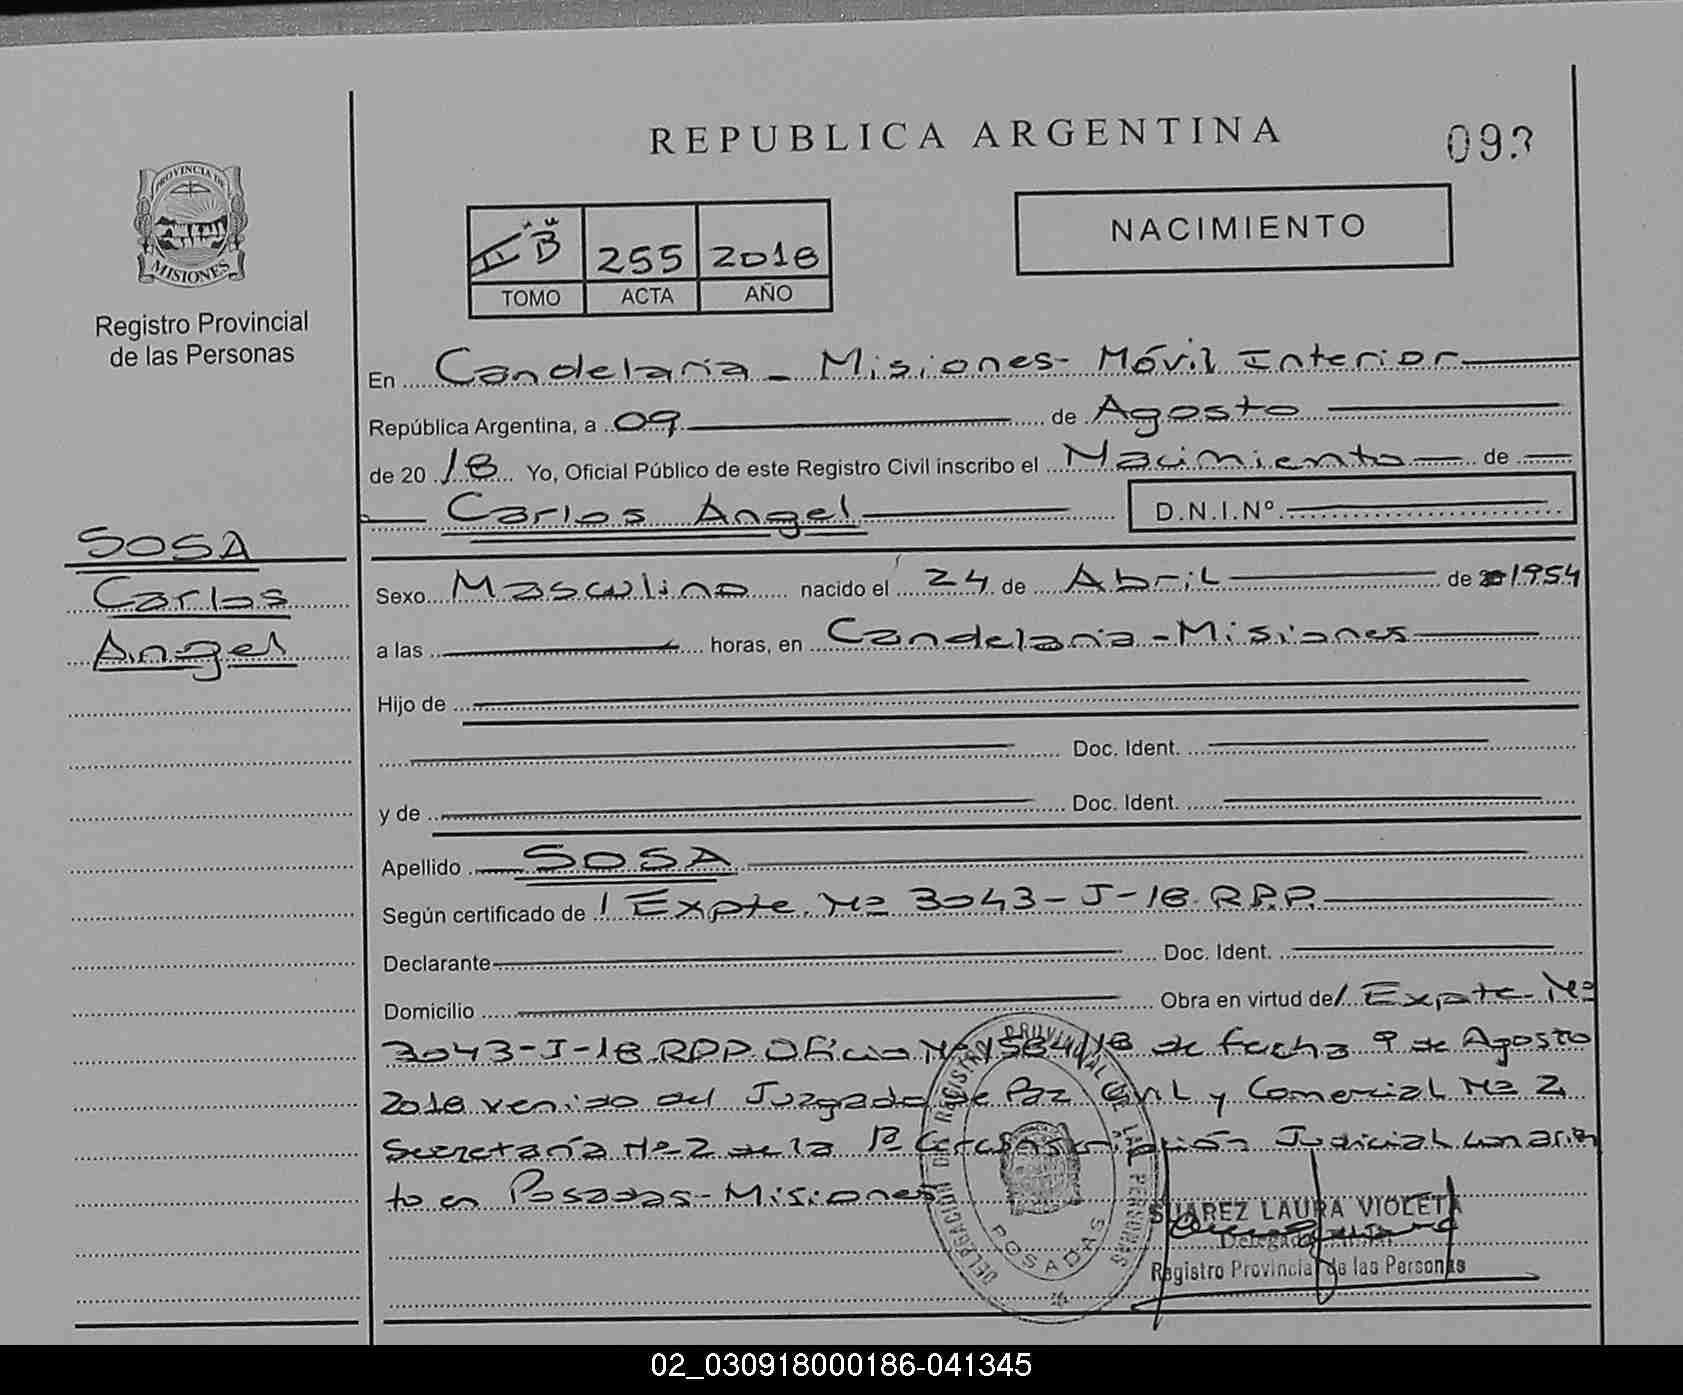 REPUBLICA ARGENTINA
093
PROVINCIA DE
MISIONES
Registro Provincial
de las Personas
II "B" 255 2018
TOMO ACTA AÑO
NACIMIENTO
En Candelaria - Misiones - Móvil Interior
República Argentina, a 09 de Agosto
de 20 18 Yo, Oficial Público de este Registro Civil inscribo el Nacimiento de
Carlos Angel D.N.I.Nº
SOSA
Carlos
Angel
Sexo Masculino nacido el 24 de Abril de 1954
a las horas, en Candelaria - Misiones
Hijo de
Doc. Ident.
y de Doc. Ident.
Apellido SOSA
Según certificado de Expte. Nº 3043-J-18 R.P.P.
Declarante Doc. Ident.
Domicilio Obra en virtud de Expte. Nº
3043-J-18 RPP. Oficio Nº de fecha 9 de Agosto
2018 venido del Juzgado de Paz Civil y Comercial Nº 2
Secretaría Nº 2 de la 1ª Circunscripción Judicial con asien
to en Posadas - Misiones
DELEGACION DE REGISTRO PROVINCIAL DE LAS PERSONAS
POSADAS
SUAREZ LAURA VIOLETA
Registro Provincial de las Personas
02_030918000186-041345